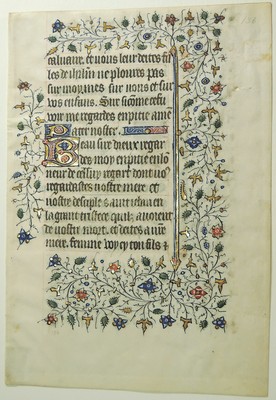 caluaire. et nous leur dictes fil
les de ihrlm ne ploures pas
sur moy mes sur nous et sur
vos enfans. Sire si cõme ce fu
voir me regardes en pitie amẽ
Pater noster.
Beau sir dieux regar
des moy en pitie en lo
neur de cestuy regard dont vo9
regardastes nostre mere et
nostre desciple saint iehan en
la grant destrece quilz auoient
de nostre mort. et dictes a vre
mere. femme voy cy ton fils